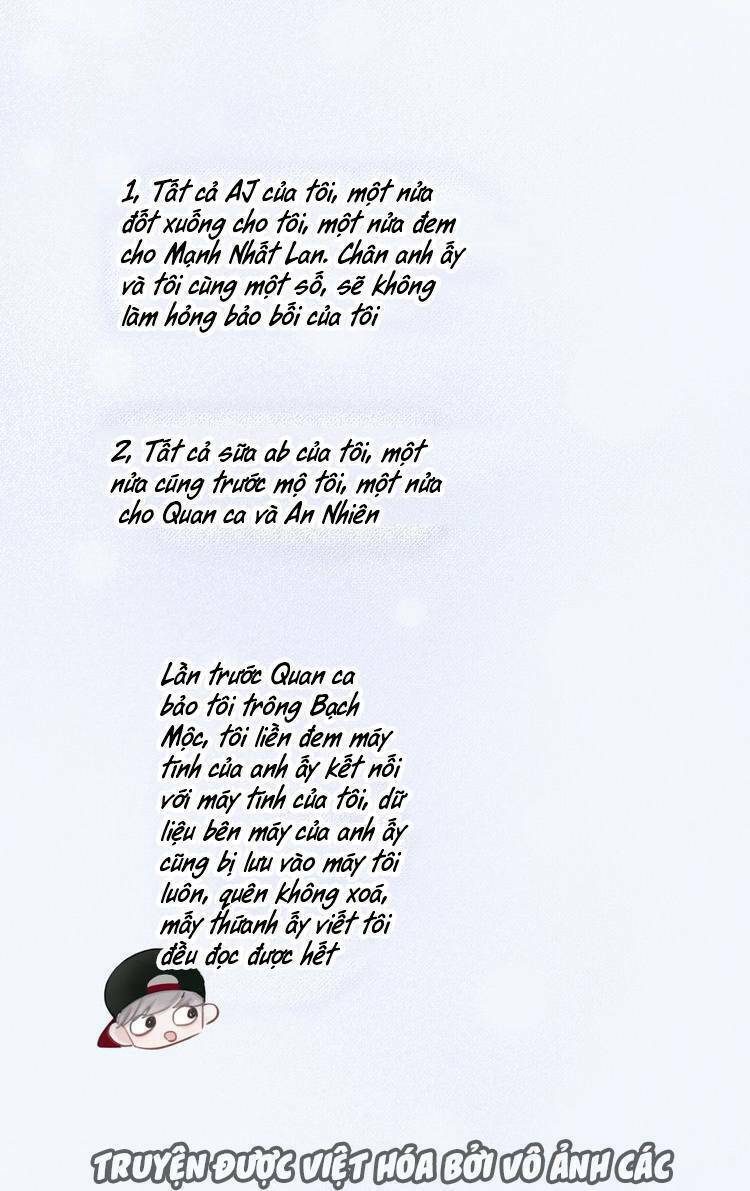 1, Tất cả AJ của tôi, một nửa
đốt xuống cho tôi, một nửa đem
cho Mạnh Nhất Lan. Chân anh ấy
và tôi cùng một số, sẽ không
làm hỏng bảo bối của tôi
2, Tất cả sữa ab của tôi, một
nửa cúng trước mộ tôi, một nửa
cho Quan ca và An Nhiên
Lần trước Quan ca
bảo tôi trông Bạch
Mộc, tôi liền đem máy
tính của anh ấy kết nối
với máy tính của tôi, dữ
liệu bên máy của anh ấy
cũng bị lưu vào máy tôi
luôn, quên không xoá,
mấy thứanh ấy viết tôi
đều đọc được hết
TRUYỆN ĐƯỢC VIỆT HÓA BỞI VÔ ẢNH CÁC